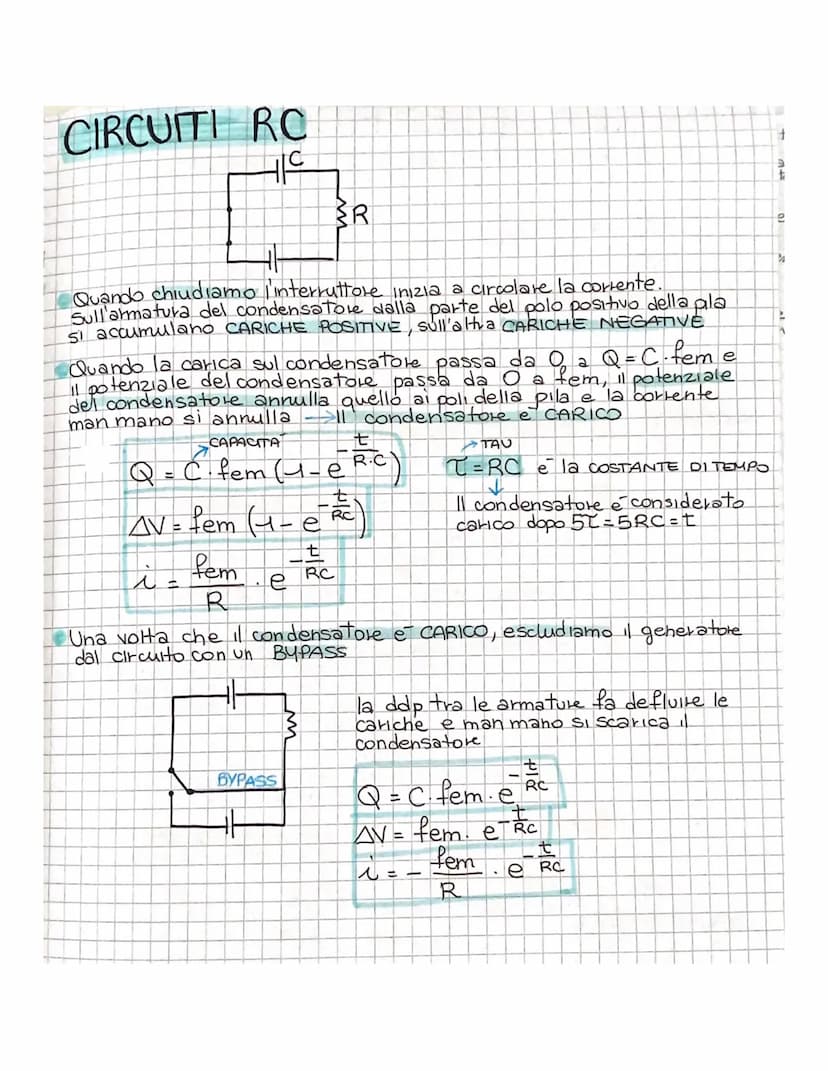 CIRCUITI RC
C
R
Quando chiudiamo l'interruttore inizia a circolare la corrente.
Sull'armatura del condensatore dalla parte del polo positivo della pila
si accumulano CARICHE POSITIVE, sull'altra CARICHE NEGATIVE
Quando la carica sul condensatore passa da 0 a Q = C · fem e
il potenziale del condensatore passa da 0 a fem, il potenziale
del condensatore annulla quello ai poli della pila e la corrente
man mano si annulla → Il condensatore è CARICO
CAPACITÀ
Q = C · fem (1 - e^(-t/R·C))
TAU
τ = RC è la COSTANTE DI TEMPO
ΔV = fem (1 - e^(-t/RC))
Il condensatore è considerato
carico dopo 5τ = 5RC = t
i = fem/R · e^(-t/RC)
Una volta che il condensatore è CARICO, escludiamo il generatore
dal circuito con un BYPASS
BYPASS
la ddp tra le armature fa defluire le
cariche e man mano si scarica il
condensatore
Q = C · fem · e^(-t/RC)
ΔV = fem · e^(-t/RC)
i = - fem/R · e^(-t/RC)